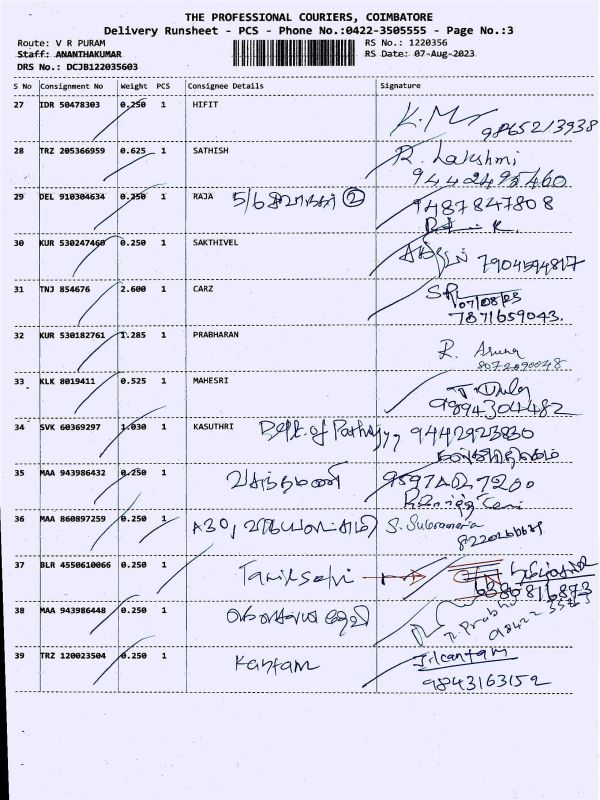 THE PROFESSIONAL COURIERS, COIMBATORE
Delivery Runsheet - PCS - Phone No.:0422-3505555 - Page No.:3
Route: V R PURAM
RS No.: 1220356
Staff: ANANTHAKUMAR
RS Date: 07-Aug-2023
DRS No.: DCJB122035603
S No Consignment No Weight PCS Consignee Details Signature
27 IDR 50478303 0.250 1 HIFIT
9865213938
28 TRZ 205366959 0.625 1 SATHISH R. Lakshmi
9442495460
29 DEL 910304634 0.250 1 RAJA 5/6 ② 9487847808
30 KUR 530247460 0.250 1 SAKTHIVEL 7904594817
31 TNJ 854676 2.600 1 CARZ
07/08/23
7871659043.
32 KUR 530182761 1.285 1 PRABHARAN R. Aruna
33 KLK 8019411 0.525 1 MAHESRI
9894304482
34 SVK 60369297 1.030 1 KASUTHRI Dept. of 9442923830
35 MAA 943986432 0.250 1 வசந்தமணி
36 MAA 860897259 0.250 1 A30, S. Subramania
37 BLR 4550610066 0.250 1 Tamilselvi
6380816873
38 MAA 943986448 0.250 1
R. Prabhu
39 TRZ 120023504 0.250 1 Kantam
9843163152